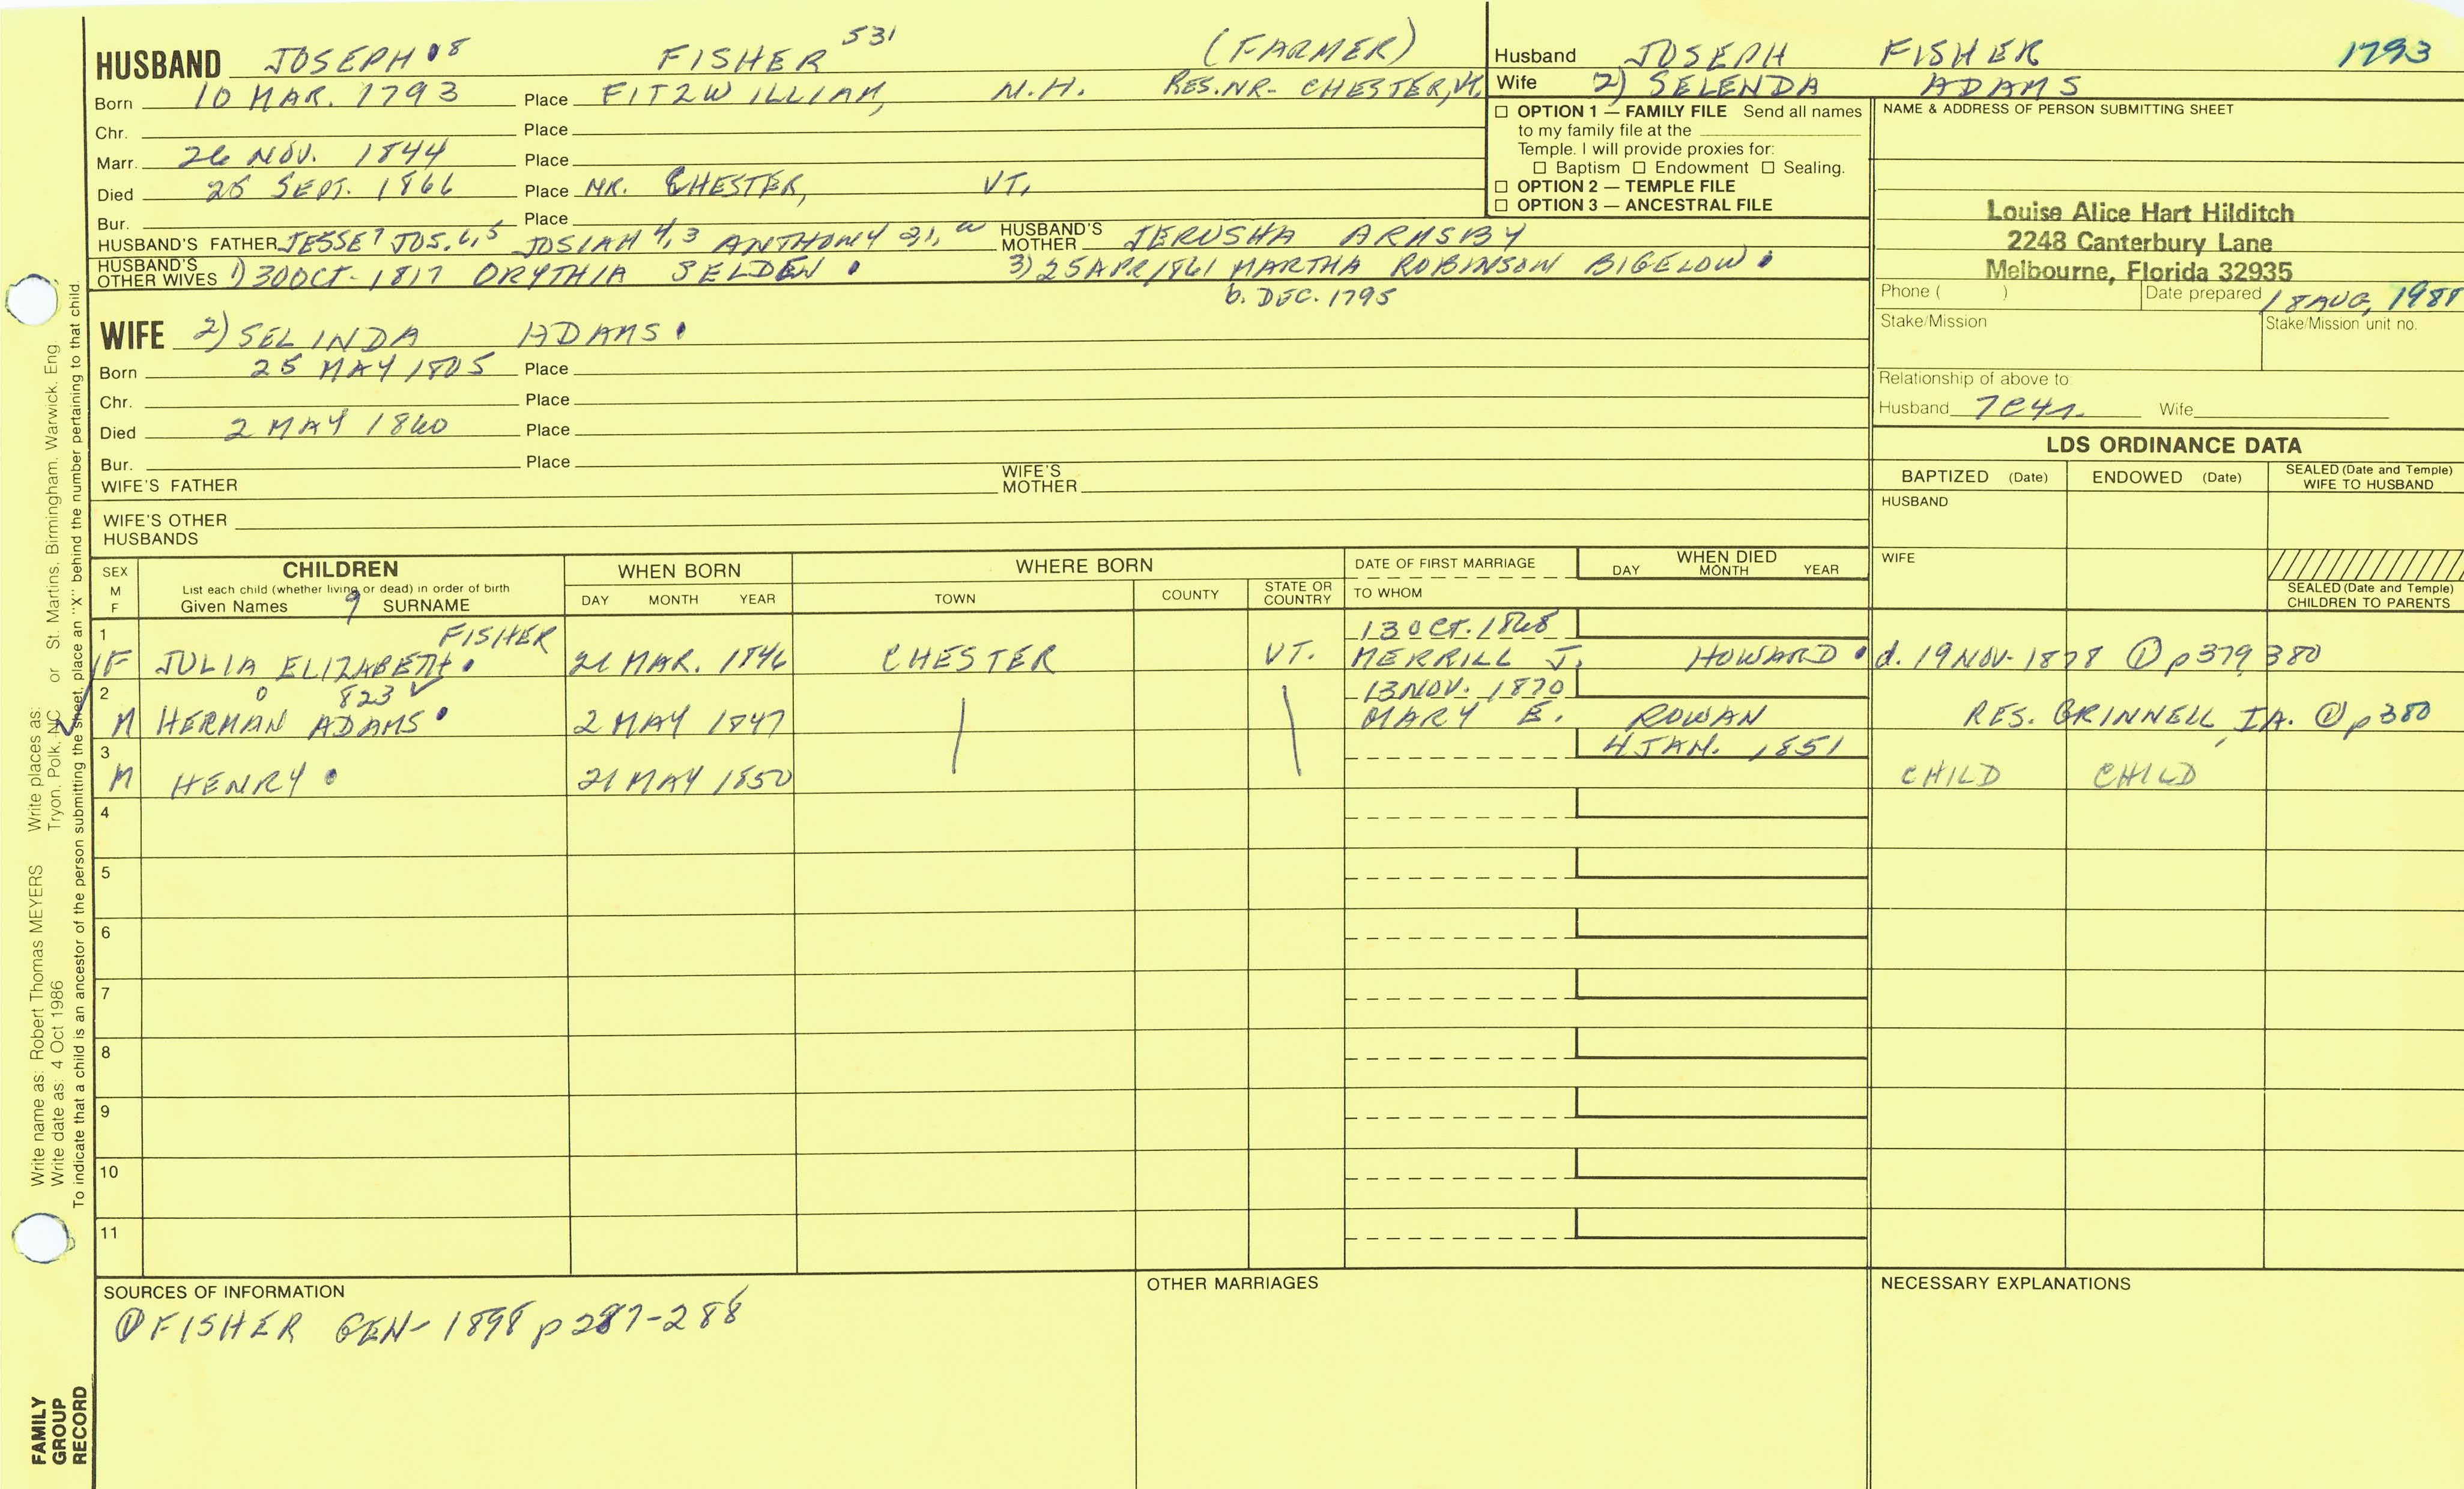 HUSBAND JOSEPH 8 FISHER 531 (FARMER)
Born 10 MAR. 1793 Place FITZWILLIAM, N.H. RES. NR- CHESTER, Vt.
Chr. Place
Marr. 26 NOV. 1844 Place
Died 25 SEPT. 1866 Place NR. CHESTER, VT.
Bur. Place
HUSBAND'S FATHER JESSE 7 JOS. 6,5 JOSIAH 4,3 ANTHONY 2,1, HUSBAND'S MOTHER JERUSHA ARMSBY
HUSBAND'S OTHER WIVES 1) 30 OCT- 1817 ORYTHIA SELDEN 3) 25 APR 1861 MARTHA ROBINSON BIGELOW
b. DEC. 1795
WIFE 2) SELINDA ADAMS
Born 25 MAY 1805 Place
Chr. Place
Died 2 MAY 1860 Place
Bur. Place
WIFE'S FATHER WIFE'S MOTHER
WIFE'S OTHER HUSBANDS
Husband JOSEPH FISHER 1793
Wife 2) SELENDA ADAMS
☐ OPTION 1 — FAMILY FILE Send all names
to my family file at the
Temple. I will provide proxies for:
☐ Baptism ☐ Endowment ☐ Sealing.
☐ OPTION 2 — TEMPLE FILE
☐ OPTION 3 — ANCESTRAL FILE
NAME & ADDRESS OF PERSON SUBMITTING SHEET
Louise Alice Hart Hilditch
2248 Canterbury Lane
Melbourne, Florida 32935
Phone ( ) Date prepared 18 AUG, 1988
Stake/Mission Stake/Mission unit no.
Relationship of above to
Husband 7C4r. Wife
LDS ORDINANCE DATA
BAPTIZED (Date) ENDOWED (Date) SEALED (Date and Temple) WIFE TO HUSBAND
HUSBAND
WIFE
SEALED (Date and Temple) CHILDREN TO PARENTS
SEX M F CHILDREN WHEN BORN WHERE BORN DATE OF FIRST MARRIAGE WHEN DIED
List each child (whether living or dead) in order of birth
Given Names 9 SURNAME DAY MONTH YEAR TOWN COUNTY STATE OR COUNTRY TO WHOM DAY MONTH YEAR
1 FISHER 13 OCT. 1868
F JULIA ELIZABETH 21 MAR. 1846 CHESTER VT. MERRILL J. HOWARD d. 19 NOV- 1878 ① p379, 380
2 823 ✓ 13 NOV. 1870
M HERMAN ADAMS 2 MAY 1847 MARY E. ROWAN RES. GRINNELL, IA. ① p380
3 4 JAN. 1851
M HENRY 21 MAY 1850 CHILD CHILD
4
5
6
7
8
9
10
11
SOURCES OF INFORMATION OTHER MARRIAGES NECESSARY EXPLANATIONS
① FISHER GEN- 1898 p 287-288
Write name as: Robert Thomas MEYERS Write places as:
Write date as: 4 Oct 1986 Tryon, Polk, NC or St. Martins, Birmingham, Warwick, Eng
To indicate that a child is an ancestor of the person submitting the sheet, place an "X" behind the number pertaining to that child.
FAMILY
GROUP
RECORD